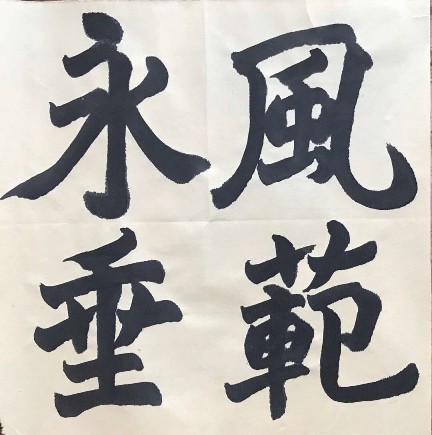 風範
永垂